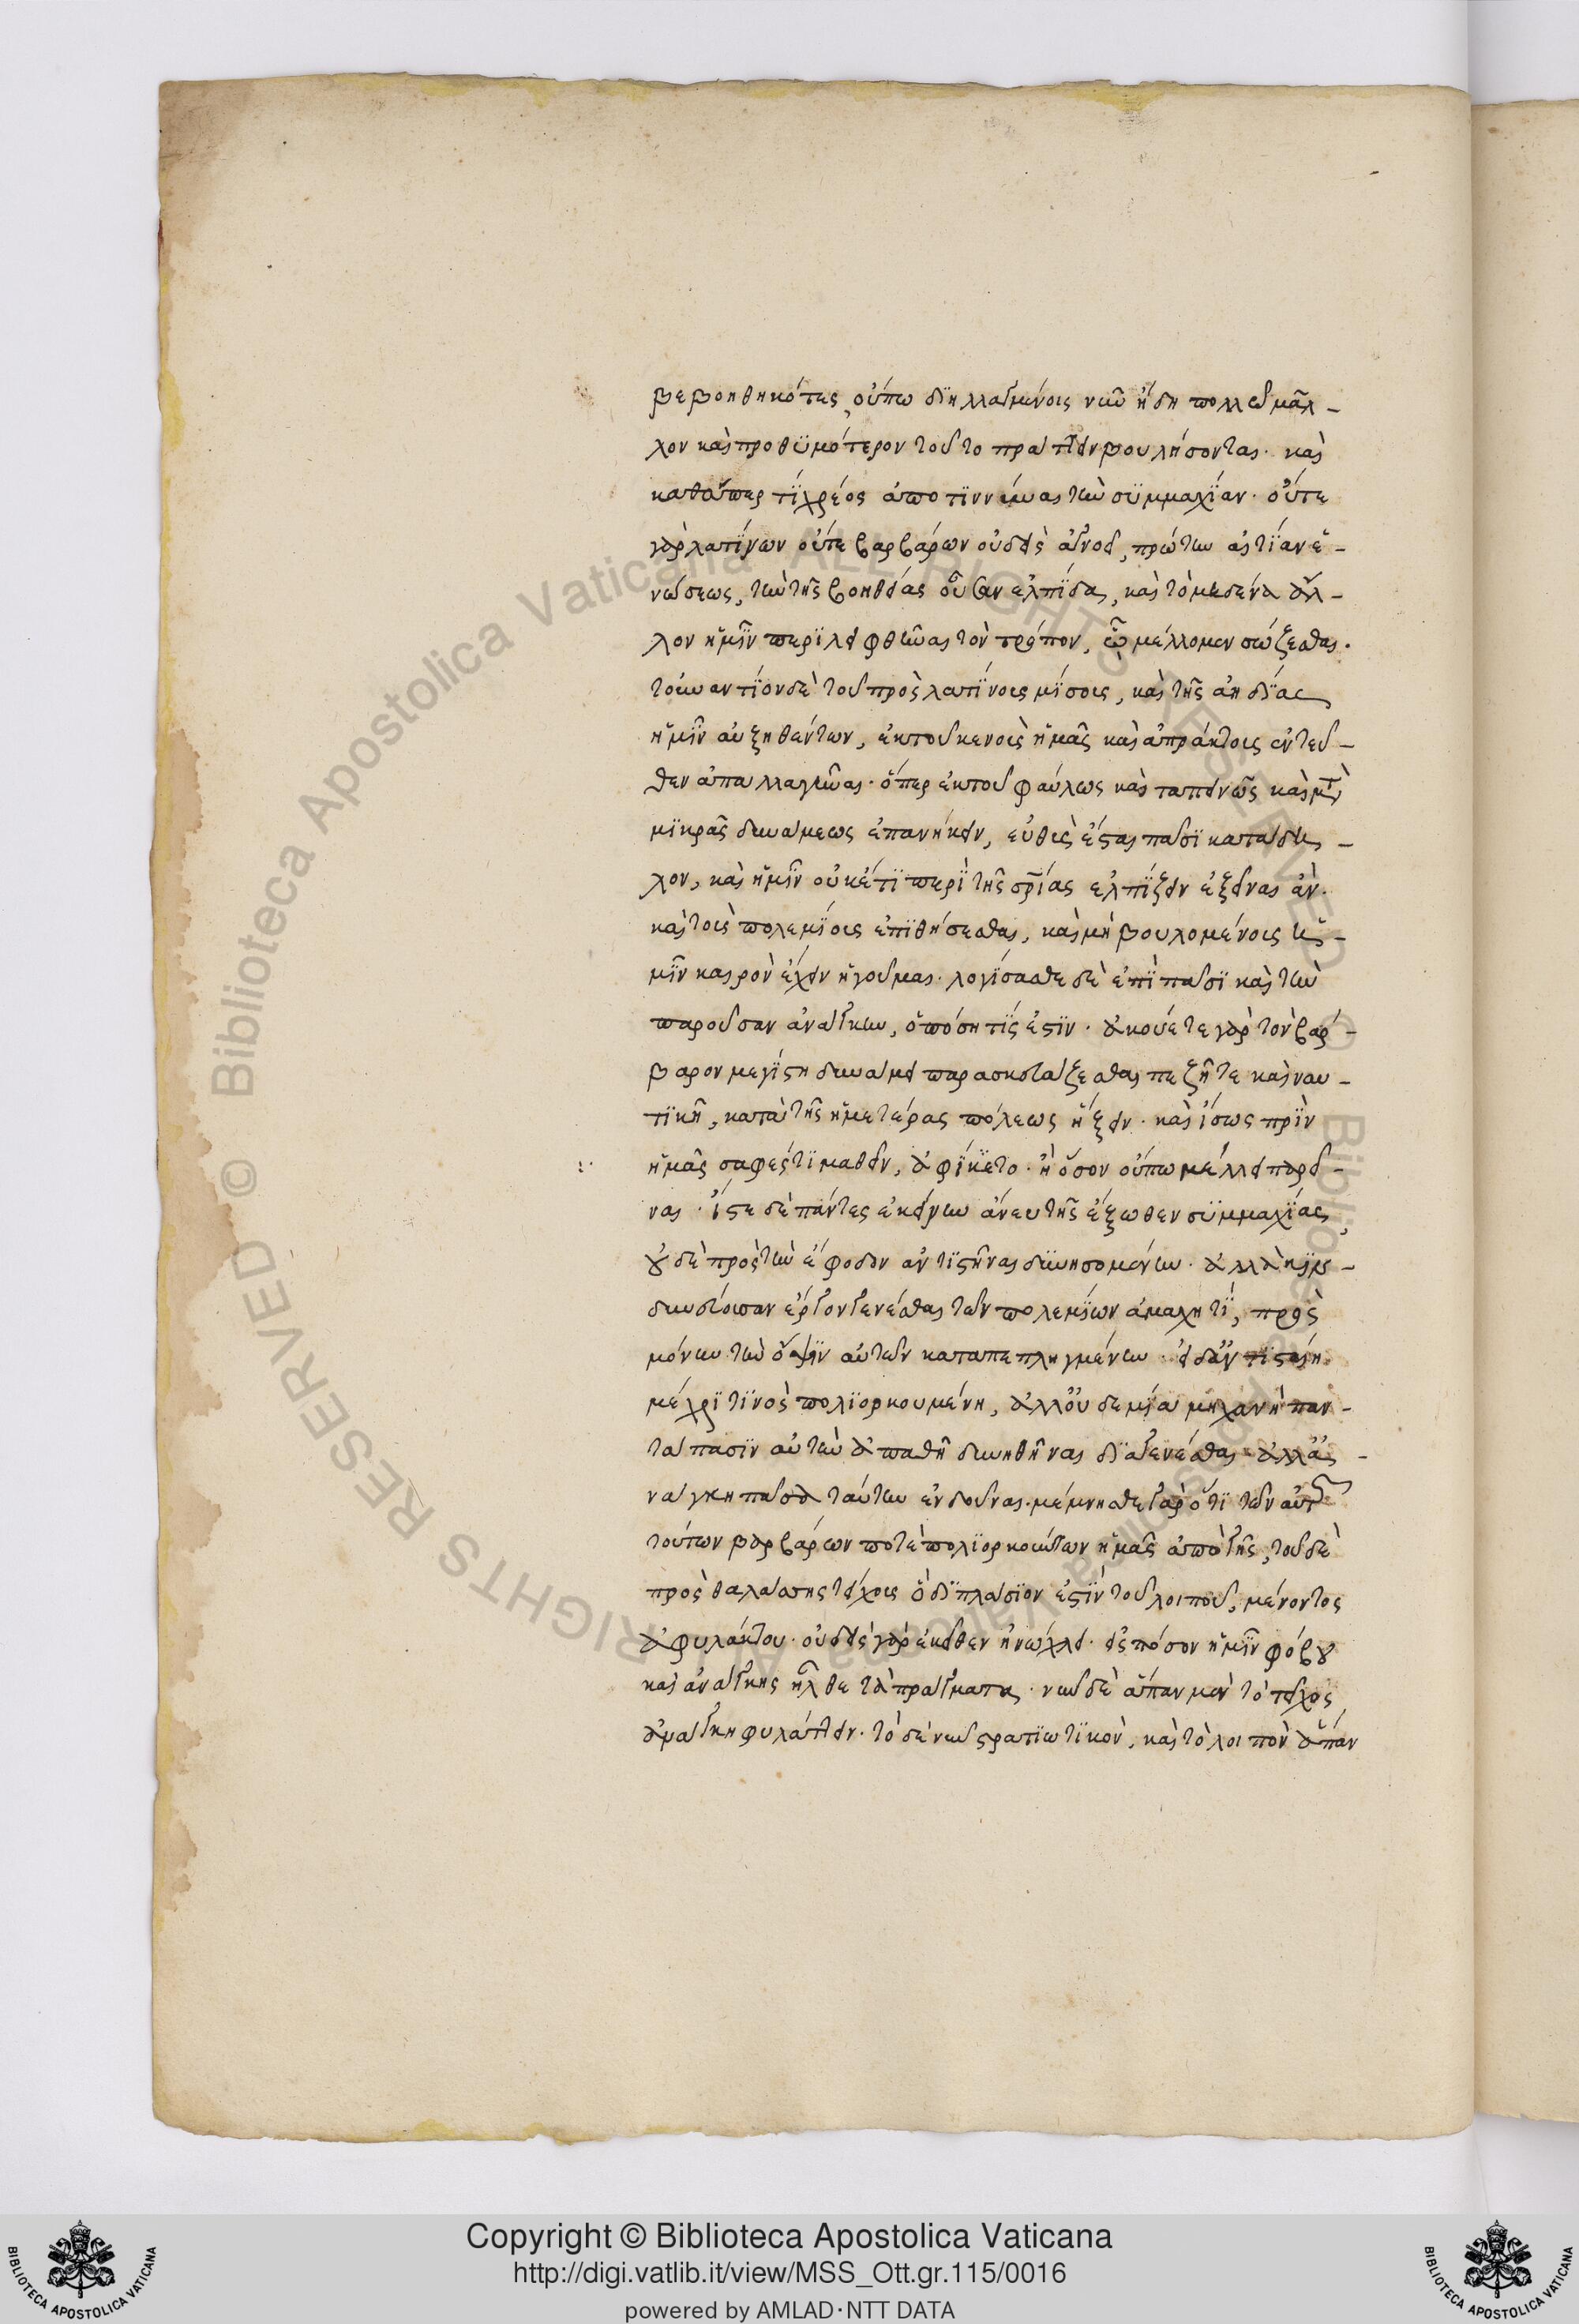 βεβοηθηκότες, οὔπω διηλλαγμένοις νῦν ἤδη πολλῶ μᾶλ-
λον καὶ προθυμότερον τοῦτο πράττειν βουλήσονται. καὶ
καθάπερ τι χρέος ἀποτιννύναι τὴν συμμαχίαν. οὔτε
γὰρ λατίνων οὔτε βαρβάρων οὐδεὶς ἀγνοεῖ, πρώτην αἰτίαν ἑ-
νώσεως, τὴν τῆς βοηθείας οὖσαν ἐλπίδα, καὶ τὸ μηδένα ἄλ-
λον ἡμῖν περιλειφθῆναι τὸν τρόπον, ᾧ μέλλομεν σώζεσθαι.
τοὐναντίον δὲ τοῦ πρὸς λατίνους μίσους, καὶ τῆς ἀηδίας
ἡμῖν αὐξηθέντων, ἐκ τοῦ κενοὺς ἡμᾶς καὶ ἀπράκτους ἐντεῦ-
θεν ἀπαλλαγῆναι. ὅπερ ἐκ τοῦ φαύλως καὶ ταπεινῶς καὶ μετὰ
μικρᾶς δυνάμεως ἐπανήκειν, εὐθὺς ἔσται πᾶσι κατάδη-
λον, καὶ ἡμῖν οὐκέτι περὶ τῆς σωτηρίας ἐλπίζειν ἐξεῖναι ἄν.
καὶ τοῖς πολεμίοις ἐπιθήσεσθαι, καὶ μὴ βουλομένοις ἡ-
μῖν καιρὸν ἔχειν ἡγοῦμαι. λογίσασθε δὲ ἐπὶ πᾶσι καὶ τὴν
παροῦσαν ἀνάγκην, ὁπόση τίς ἐστιν. ἀκούετε γὰρ τὸν βάρ-
βαρον μεγίστη δυνάμει παρασκευάζεσθαι πεζῆ τε καὶ ναυ-
τικῆ, κατὰ τῆς ἡμετέρας πόλεως ἥξειν. καὶ ἴσως πρὶν
ἡμᾶς σαφές τι μαθεῖν, ἀφίκετο. ἢ ὅσον οὔπω μέλλει παρεῖ-
ναι. ἴστε δὲ πάντες ἐκείνην ἄνευ τῆς ἔξωθεν συμμαχίας,
οὐδὲ πρὸς τὴν ἔφοδον ἀντιστῆναι δυνησομένην. ἀλλὰ κιν-
δυνεύουσαν ἔργον γενέσθαι τῶν πολεμίων ἀμαχητί, πρὸς
μόνην τὴν ὄψιν αὐτῶν καταπεπληγμένην. εἰ δ' ἀντισταίη
μέχρι τινὸς πολιορκουμένη, ἀλλ' οὐδεμία μηχανὴ παν-
τάπασιν αὐτὴν ἀπαθῆ δυνηθῆναι διαγενέσθαι. ἀλλ' ἀ-
νάγκη πᾶσα ταύτην ἐνδοῦναι. μέμνησθε γὰρ ὅτι τῶν αὐτῶν
τούτων βαρβάρων ποτὲ πολιορκούντων ἡμᾶς ἀπὸ γῆς, τοῦ δὲ
πρὸς θαλάσσης τείχους ὃ διπλάσιον ἐστὶν τοῦ λοιποῦ, μένοντος
ἀφυλάκτου. οὐδεὶς γὰρ ἐκεῖθεν ἠνώχλει. εἰς πόσον ἡμῖν φόβου
καὶ ἀνάγκης ἦλθε τὰ πράγματα. νῦν δὲ ἅπαν μὲν τὸ τεῖχος
ἀνάγκη φυλάττειν. τὸ δὲ νῦν στρατιωτικὸν, καὶ τὸ λοιπὸν ἅπαν
Copyright © Biblioteca Apostolica Vaticana
http://digi.vatlib.it/view/MSS_Ott.gr.115/0016
powered by AMLAD·NTT DATA